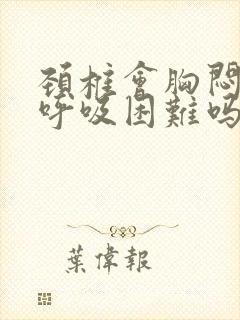 頚椎會胸悶
呼吸困難嗎
葉偉報